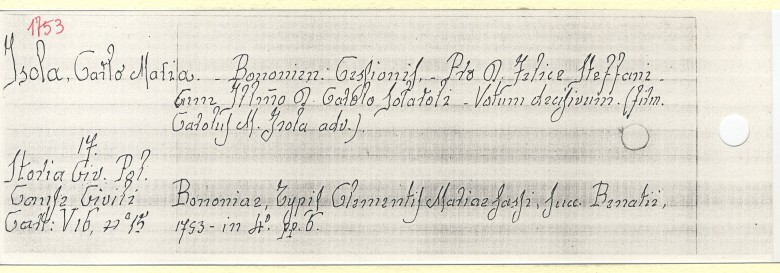 1753
Isola, Carlo Maria. - Bononien. Cessionis. - Pro D. Felice Steffani -
Cum Illmo D. Carolo Solaroli - Votum decisivum. (firm.
Carolus M. Isola adv.).
17.
Storia Civ. Pol.
Cause Civili
Cart: V 16, n° 15
Bononiae, Typis Clementis Mariae Sassi, succ. Benatii,
1753 - in 4°. pp. 6.